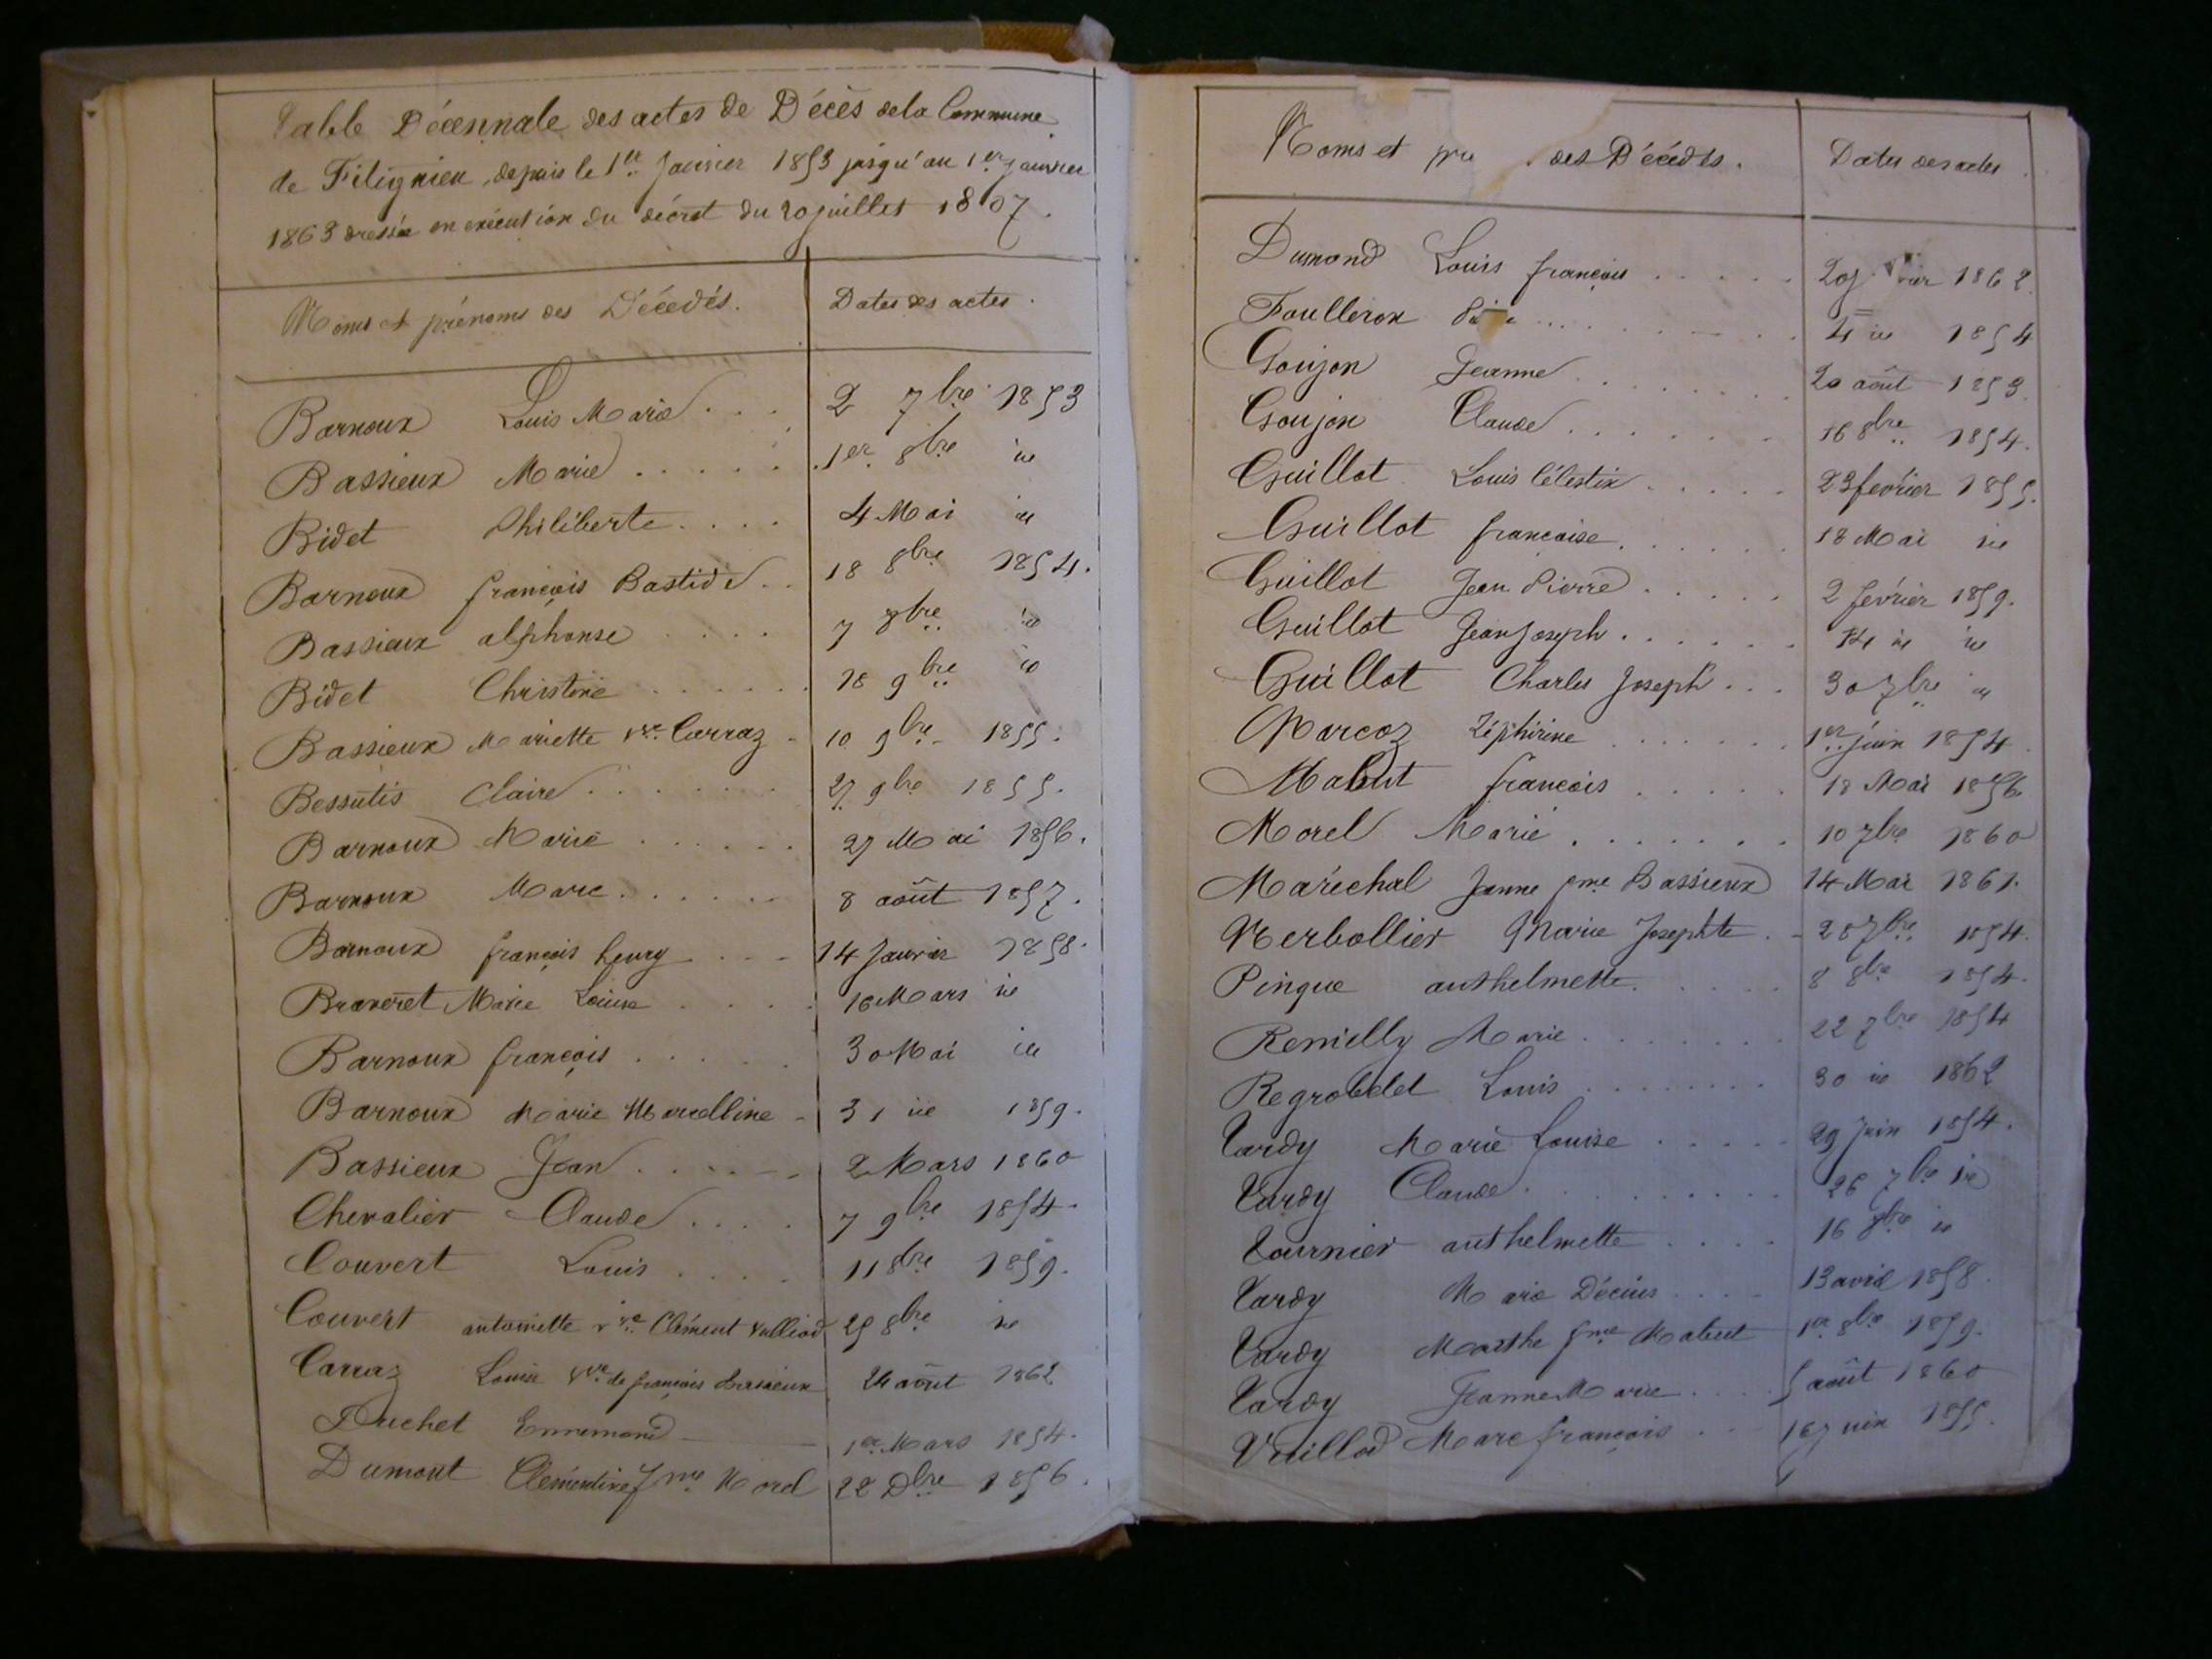 Table Décennale des actes de Décès de la Commune
de Fitignieu, depuis le 1er Janvier 1853 jusqu'au 1er janvier
1863 dressée en exécution du décret du 20 juillet 1807.
Noms et prénoms des Décédés. Dates des actes.
Barnoux Louis Marie 2 7bre 1853
Bassieux Marie 1er 8bre id
Bidet Philiberte 4 Mai id
Barnoux françois Bastide 18 8bre 1854.
Bassieux alphonse 7 8bre id
Bidet Christine 18 9bre id
Bassieux Mariette vve Carraz 10 9bre 1855.
Bessutis Claire 27 9bre 1855.
Barnoux Marie 27 Mai 1856.
Barnoux Marc 8 août 1857.
Barnoux françois henry 14 Janvier 1858.
Braveret Marie Louise 16 Mars id
Barnoux françois 30 Mai id
Barnoux Marie Marcelline 31 id 1859.
Bassieux Jean 2 Mars 1860
Chevalier Claude 7 9bre 1854.
Couvert Louis 11 8bre 1859.
Couvert antoinette vve Clément Vulliod 25 8bre id
Carraz Louise vve de françois Bassieux 24 août 1862
Duchet Ennemond 1er Mars 1854.
Dumont Clémentine fme Morel 22 Dbre 1856.
Noms et des Décédés. Dates des actes
Dumond Louis françois 1862.
Foulleron 4 id 1854
Goujon Jeanne 20 août 1853.
Goujon Claude 16 8bre 1854.
Guillot Louis Célestin 23 fevrier 1855.
Guillot francoise 18 Mai id
Guillot Jean Pierre 2 février 1859.
Guillot Jean Joseph 14 id id
Guillot Charles Joseph 30 7bre id
Marcoz Zéphirine 1er juin 1854
Mabut françois 18 Mai 1856.
Morel Marie 10 7bre 1860
Maréchal Janne fme Bassieux 14 Mai 1861.
Nerbollier Marie Josephte 28 7bre 1854.
Pingue anthelmette 8 8bre 1854.
Remilly Marie 22 7bre 1854
Regrobelet Louis 30 id 1862
Tardy Marie Louise 29 Juin 1854.
Tardy Claude 26 7bre id
Tournier anthelmette 16 8bre id
Tardy Marie Décius 13 avril 1858.
Tardy Marthe fme Mabut 1er 8bre 1859.
Tardy Jeanne Marie 5 août 1860
Vuillod Marc françois 16 juin 1855.